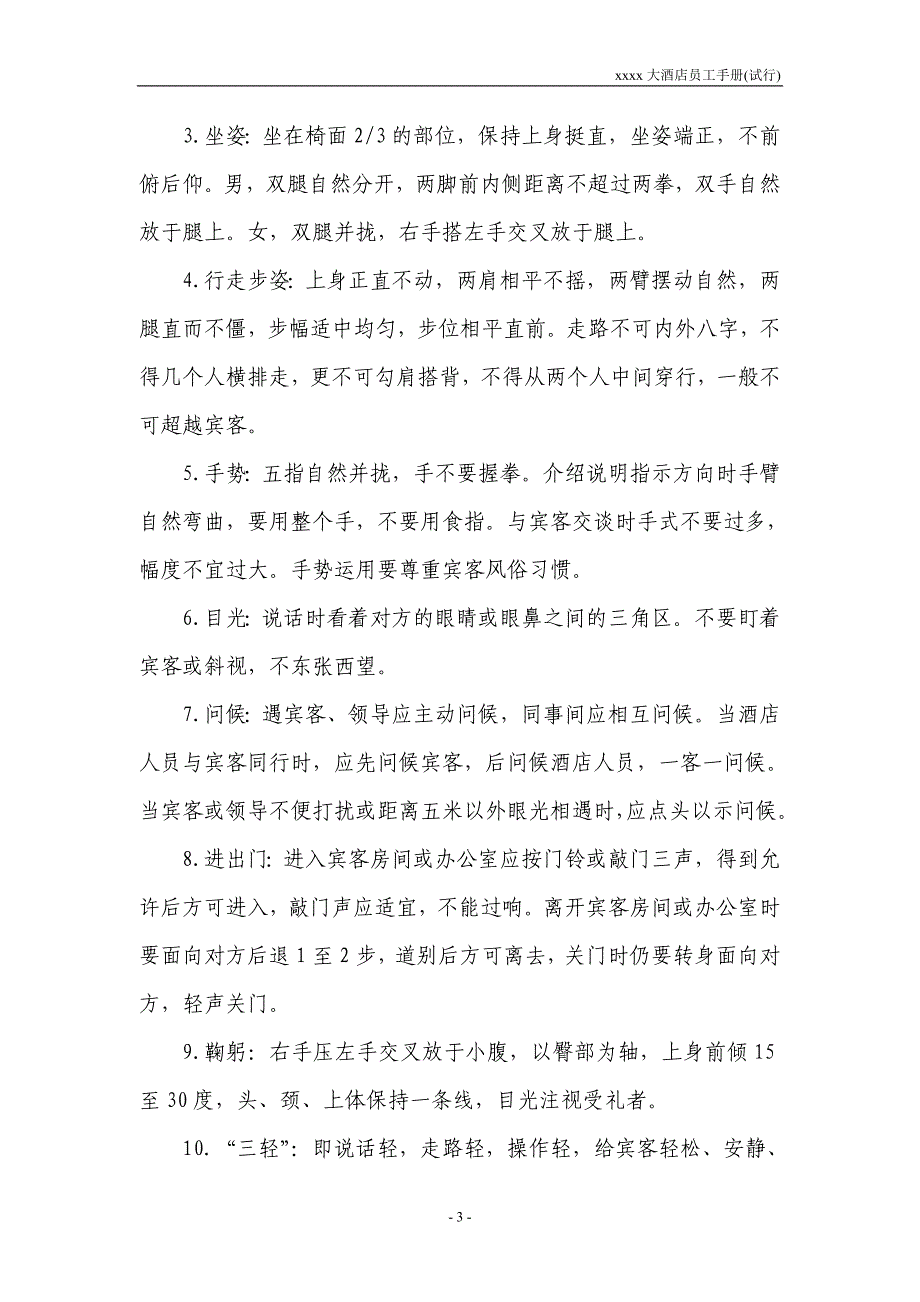 xxxx 大酒店员工手册(试行)
3.坐姿：坐在椅面 2/3 的部位，保持上身挺直，坐姿端正，不前
俯后仰。男，双腿自然分开，两脚前内侧距离不超过两拳，双手自然
放于腿上。女，双腿并拢，右手搭左手交叉放于腿上。
4.行走步姿：上身正直不动，两肩相平不摇，两臂摆动自然，两
腿直而不僵，步幅适中均匀，步位相平直前。走路不可内外八字，不
得几个人横排走，更不可勾肩搭背，不得从两个人中间穿行，一般不
可超越宾客。
5.手势：五指自然并拢，手不要握拳。介绍说明指示方向时手臂
自然弯曲，要用整个手，不要用食指。与宾客交谈时手式不要过多，
幅度不宜过大。手势运用要尊重宾客风俗习惯。
6.目光：说话时看着对方的眼睛或眼鼻之间的三角区。不要盯着
宾客或斜视，不东张西望。
7.问候：遇宾客、领导应主动问候，同事间应相互问候。当酒店
人员与宾客同行时，应先问候宾客，后问候酒店人员，一客一问候。
当宾客或领导不便打扰或距离五米以外眼光相遇时，应点头以示问候。
8.进出门：进入宾客房间或办公室应按门铃或敲门三声，得到允
许后方可进入，敲门声应适宜，不能过响。离开宾客房间或办公室时
要面向对方后退 1 至 2 步，道别后方可离去，关门时仍要转身面向对
方，轻声关门。
9.鞠躬：右手压左手交叉放于小腹，以臀部为轴，上身前倾 15
至 30 度，头、颈、上体保持一条线，目光注视受礼者。
10.“三轻”：即说话轻，走路轻，操作轻，给宾客轻松、安静、
- 3 -